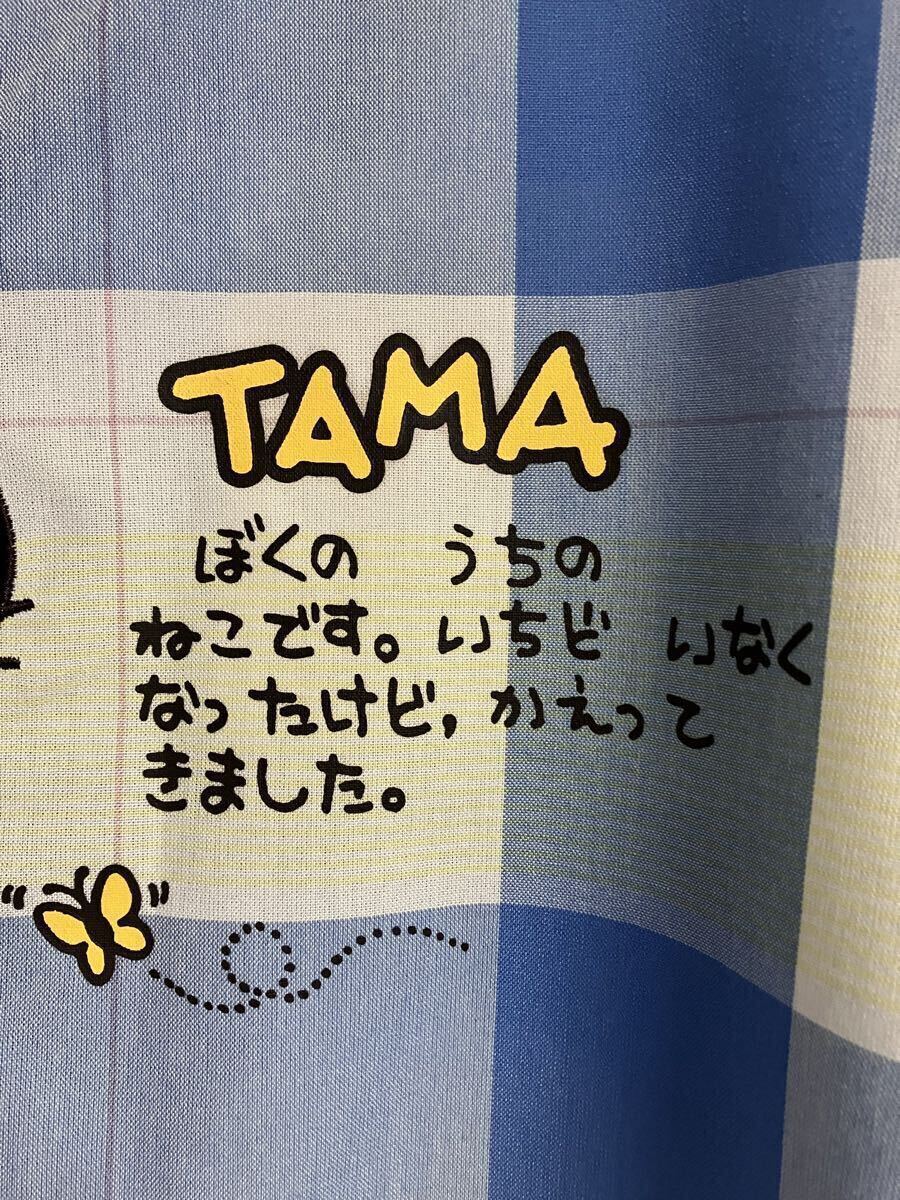 TAMA
ぼくの　うちの
ねこです。いちど　いなく
なったけど,かえって
きました。